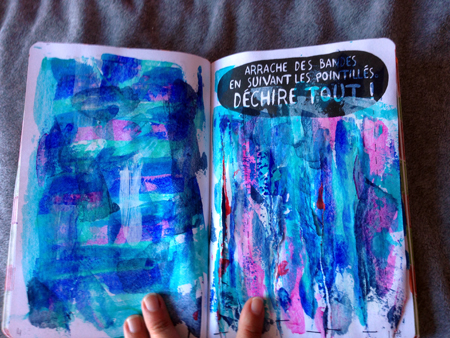 ARRACHE DES BANDES
EN SUIVANT LES POINTILLÉS.
DÉCHIRE TOUT !